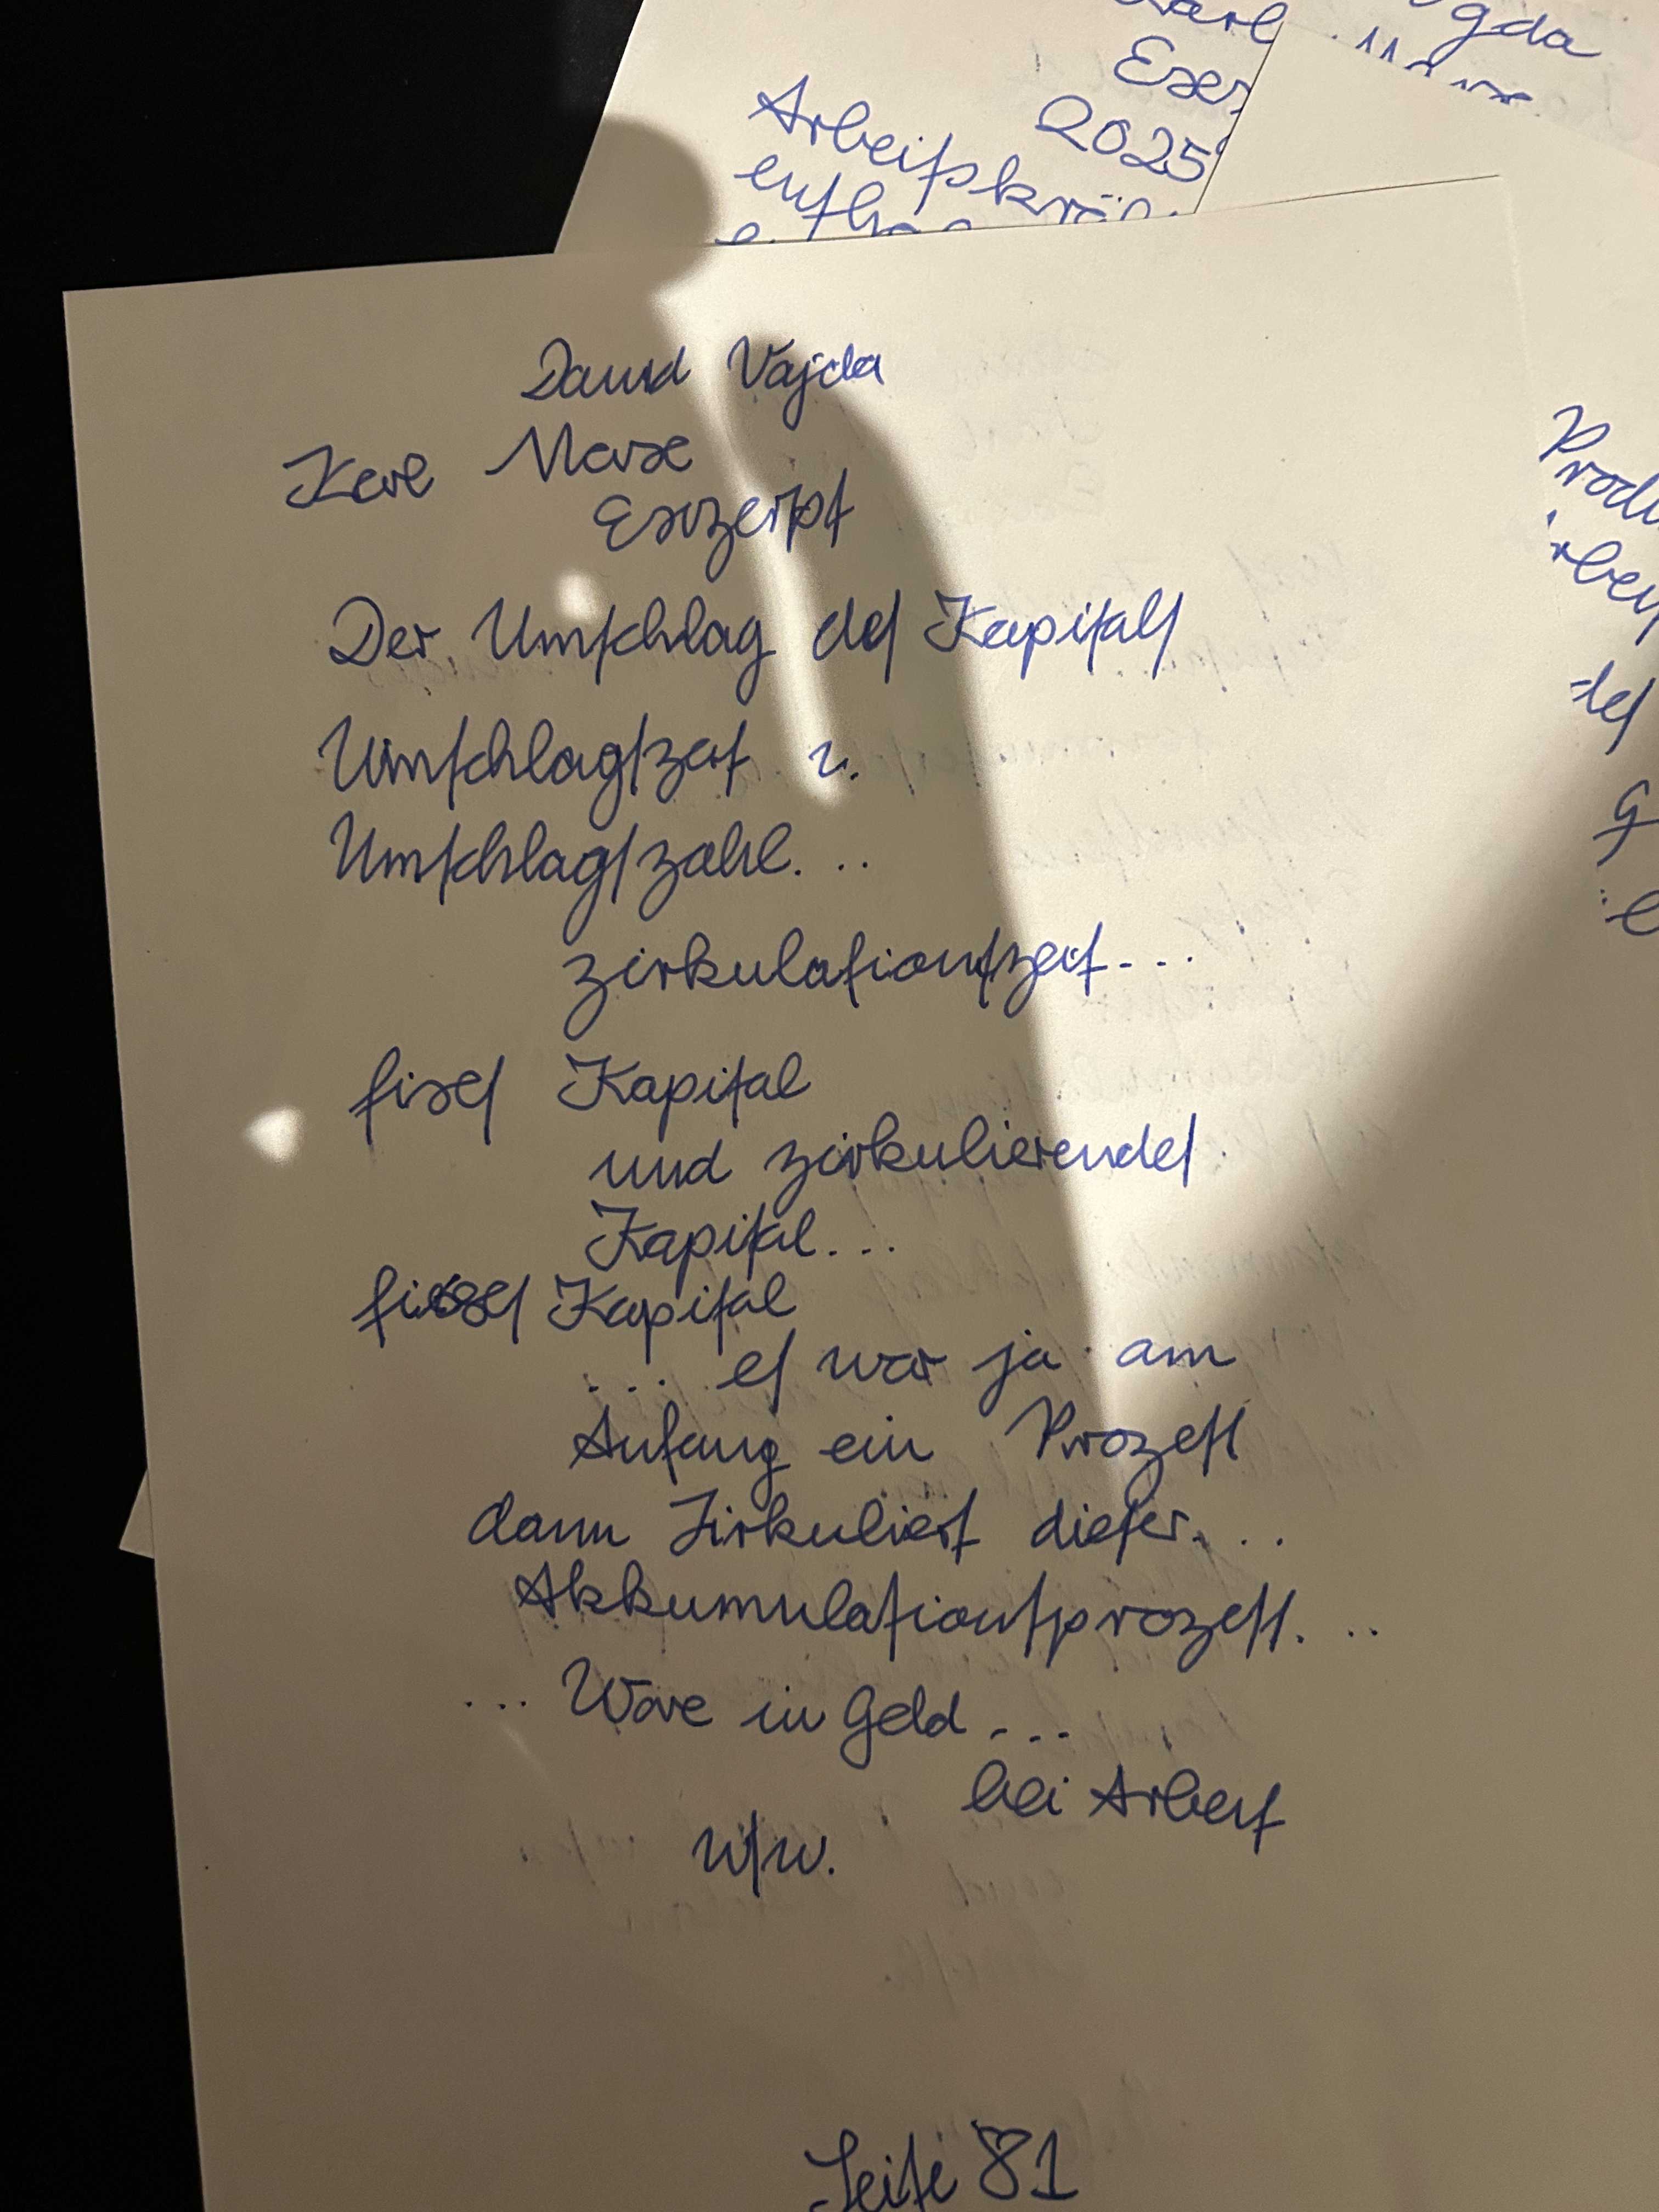 arl
gda
Exer
2025
Arbeitskrä
Produ
David Vajda
Karl Marx
Exzerpt
Der Umschlag des Kapitals
Umschlagszeit u.
Umschlagszahl...
zirkulationszeit...
fixes Kapital
und zirkulierendes
Kapital...
fixes Kapital
... es war ja am
Anfang ein Prozess
dann Zirkuliert dieser...
Akkumulationsprozess...
... Ware in Geld...
bei Arbeit
usw.
Seite 81